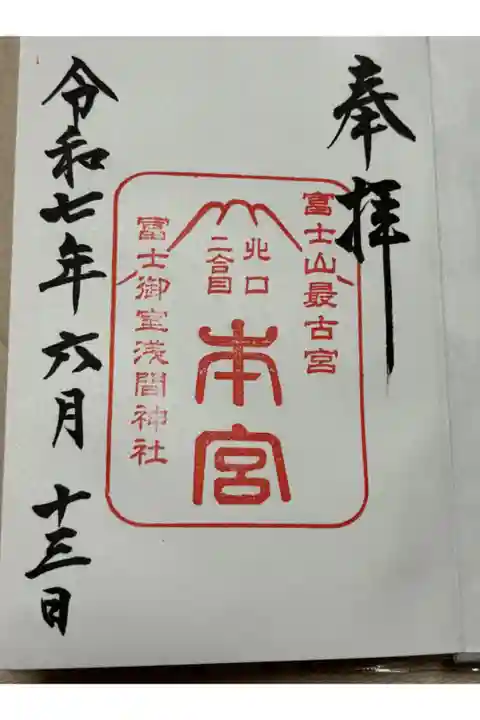 奉拝
富士山最古宮
北口
二合目
本宮
富士御室浅間神社
令和七年六月十三日